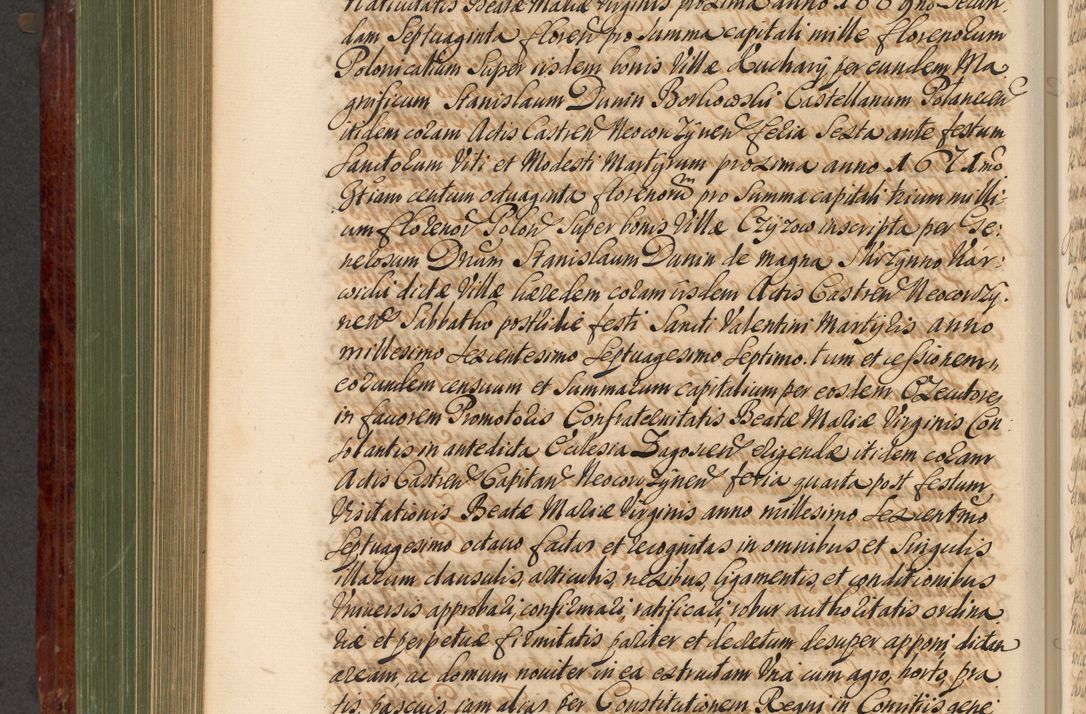 Nativitatis Beatæ Mariæ Virginis proxima anno 1669no Secun
dam Septuaginta floren pro Summa capitali mille florenorum
Polonicalium Super iisdem bonis Villæ Kuchary per eundem Ma
gnificum Stanislaum Dunin Borkowski Castellanum Polanecen
itidem coram Actis Castren Neocorczynen feria Sexta ante festum
Sanctorum Viti et Modesti Martyrum proxima anno 1671mo
centum octuaginta florenorum pro Summa capitali trium milli
um floreno Polon Super bonis Villæ Czyzow inscripta per Ge:
nerosum Dnum Stanislaum Dunin de magna Skrzynno
dictæ Villæ hæredem coram iisdem Actis Castren Neocorczy:
nen Sabbatho postridie festi Sancti Valentini Martyris anno
millesimo Sexcentesimo Septuagesimo Septimo. tum et cessionem
eorundem censuum et Summarum capitalium per eosdem Executores
in favorem Promotoris Confraternitatis Beatæ Mariæ Virginis Con:
solantis in antedicta Ecclesia Zagoscien erigendæ itidem coram
Actis Castren Capitan Neocorczynen feria quarta post festum
Visitationis Beatæ Mariæ Virginis anno millesimo Sexcentmo
Septuagesimo octavo factas et recognitas in omnibus et Singulis
illarum clausulis, articulis, nexibus, ligamentis, et conditionibus
Universis approbari, confirmari, ratificari, robur authoritatis ordina
riæ et perpetuæ firmitatis pariter et decretum desuper apponi, dictan
aream, ac domum noviter in ea extructam Una cum agro, horto, pra
tis, pascuis, jam alias per Constitutionem Regni in Comitiis gene